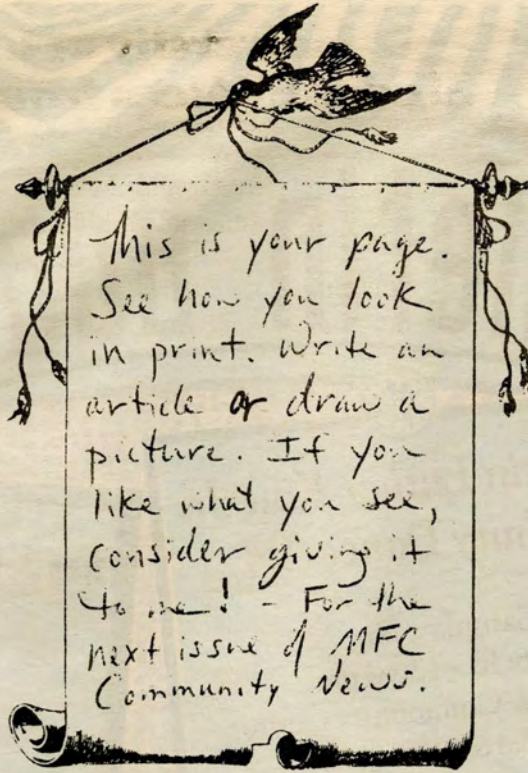 This is your page.
See how you look
in print. Write an
article or draw a
picture. If you
like what you see,
consider giving it
to me! - For the
next issue of MFC
Community News.